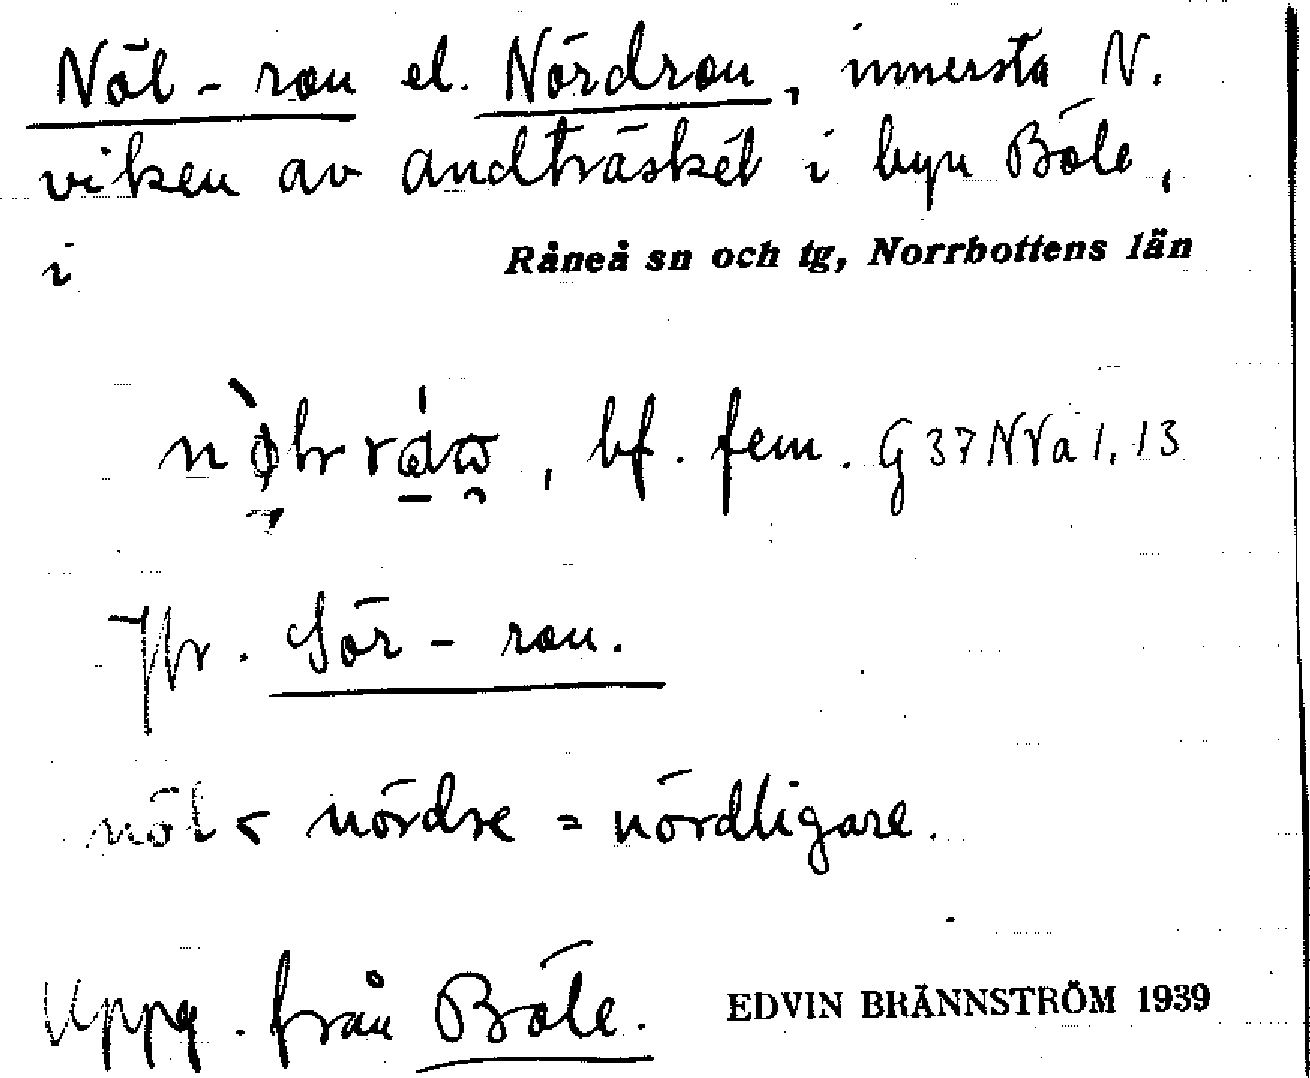 Nöl-ron el. Nördron, innersta N.
viken av andträsket i byn Böle,
i Råneå sn och tg, Norrbottens län
, bf. fem. G37NVa 1.13
Jfr. Sör-ron.
nöl < nördre = nördligare.
Uppg. från Böle. EDVIN BRÄNNSTRÖM 1939